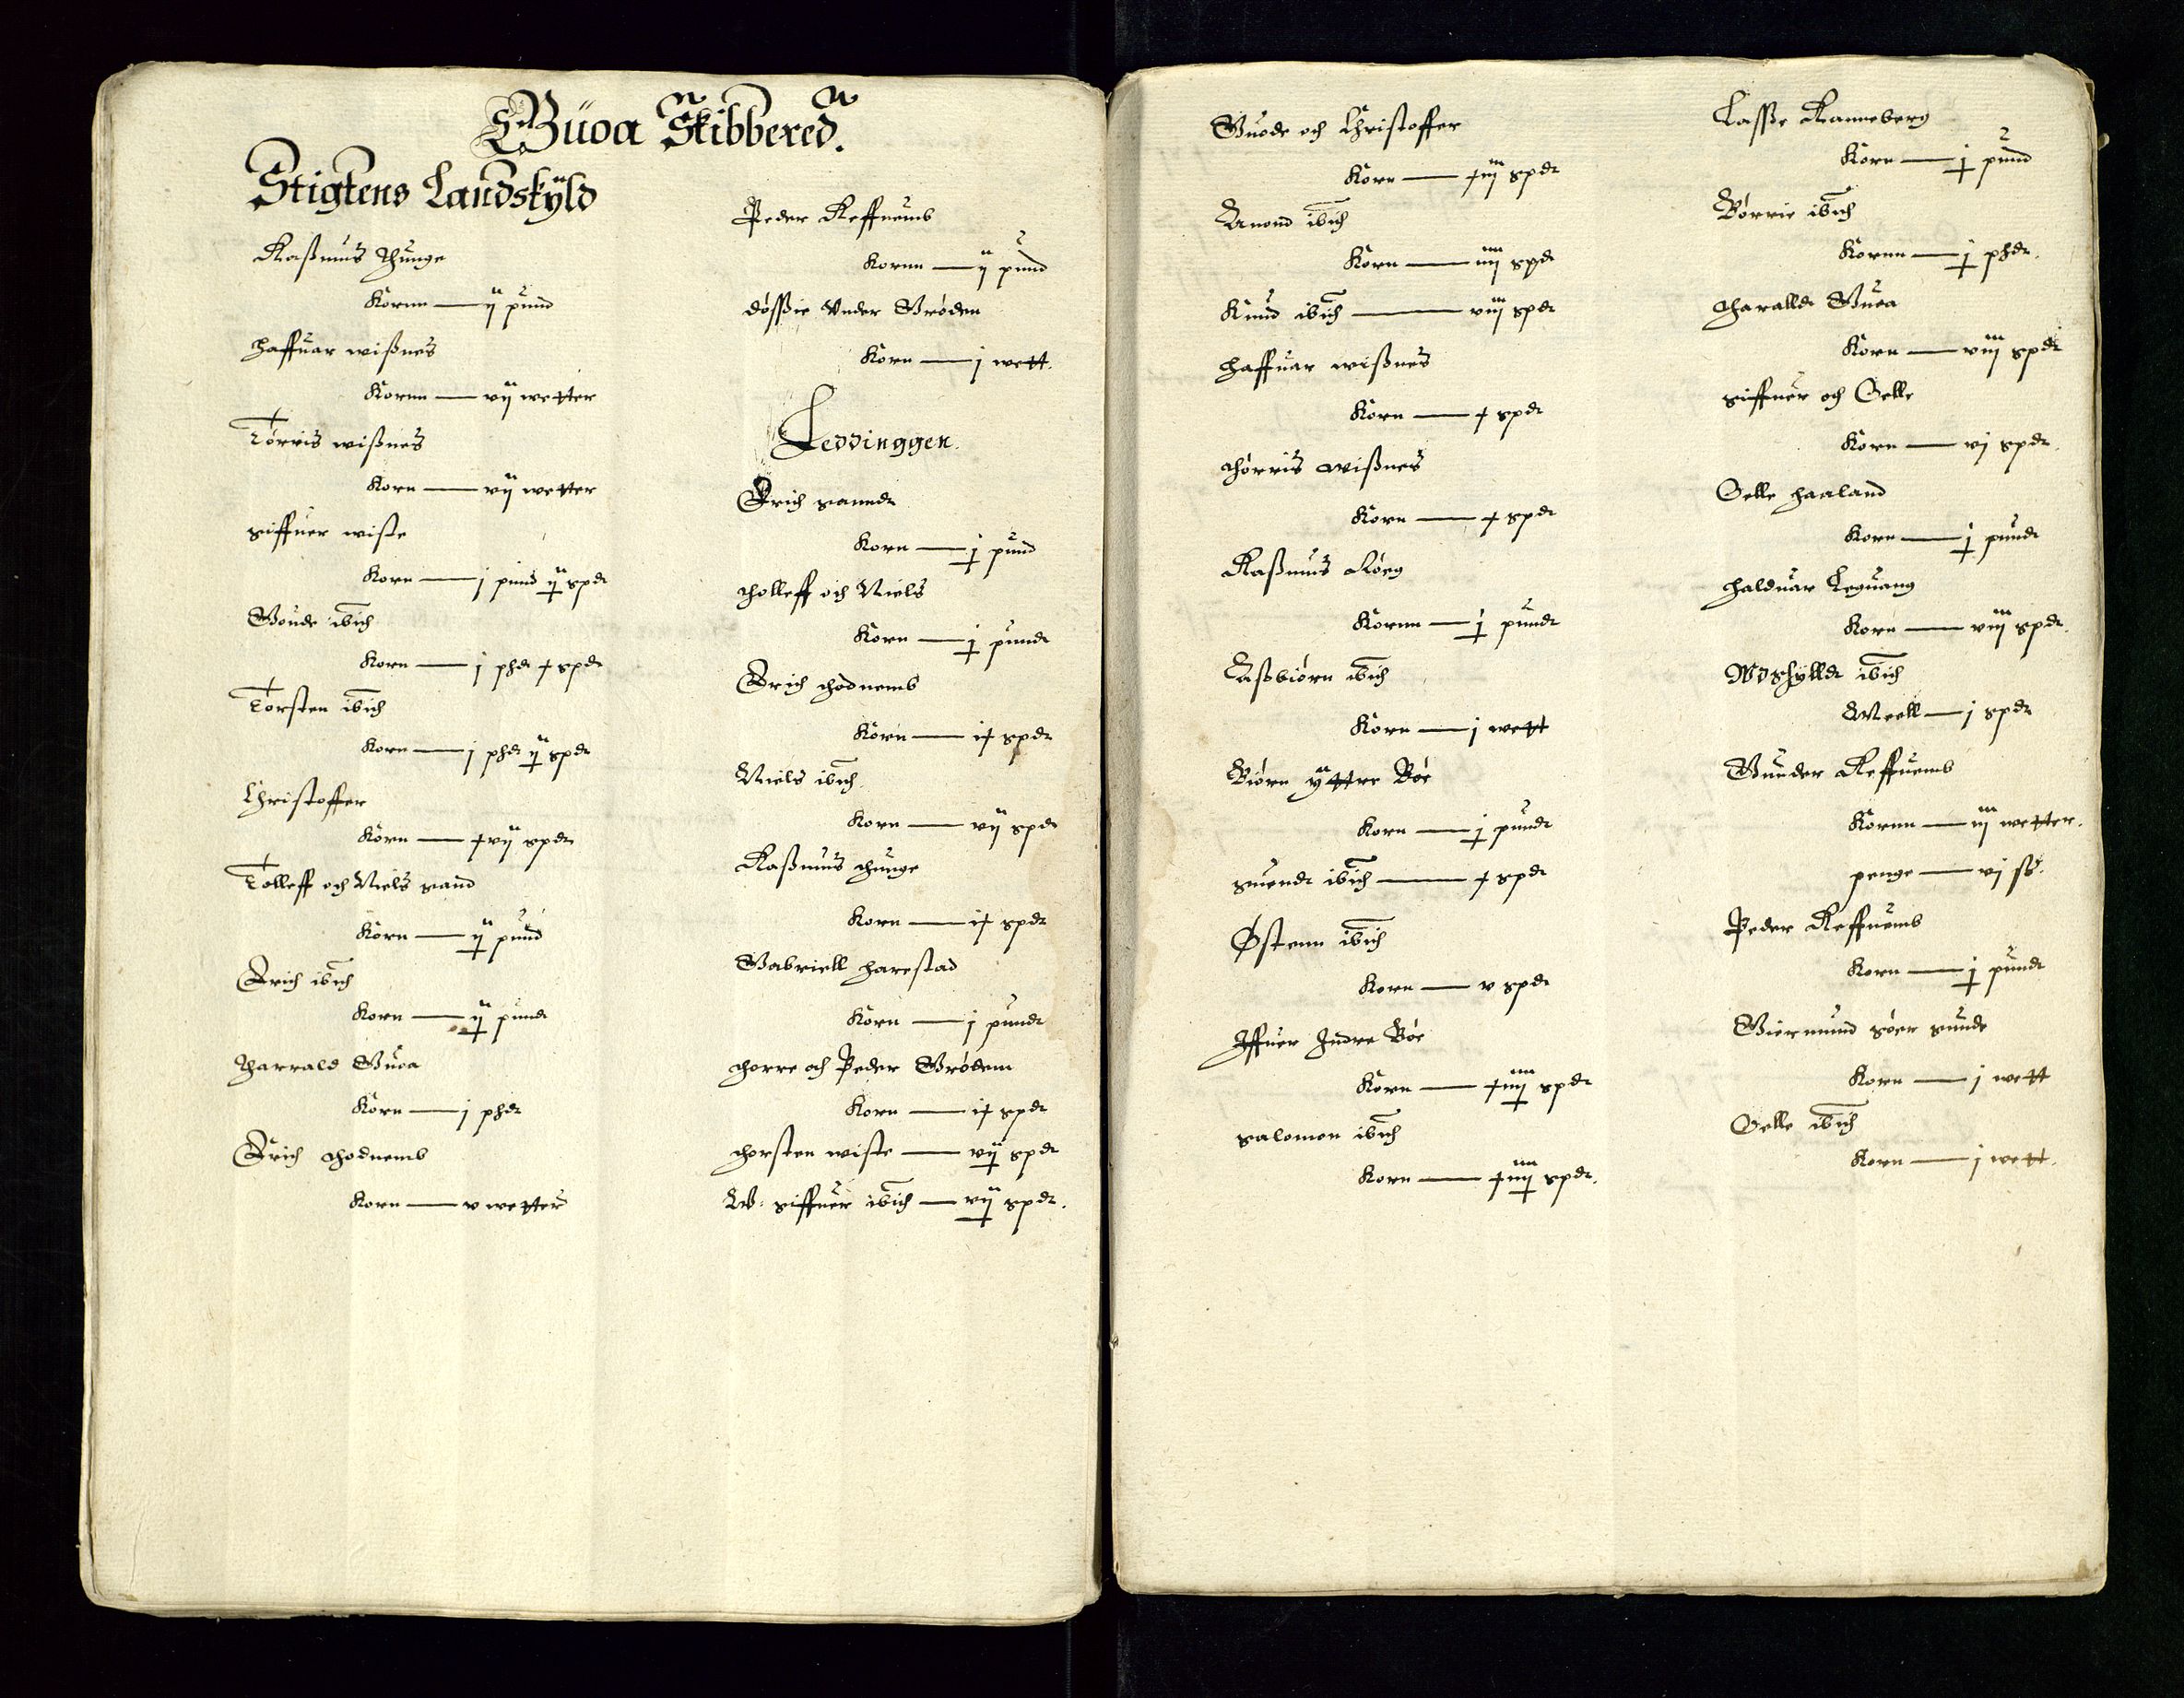 Guoa Skibbered.
Stigtens Landskyld
Rasmus Thunge
Kornn — ij pund
Haffuar wisnes
Kornn — vij wetter
Torris wisnes
Korn — vij wetter
Siffuer wiste
Korn — j pund ij spdt
Goude ibid
Korn — j phdt x spdt
Torsten ibid
Korn — j phdt ij spdt
Christoffer
Korn — xvij spdt
Tolleff och Niels Sand
Korn — ij pund
Erich ibid
Korn — ij pundt
Harrald Guoa
Korn — j phdt
Erich Thodnemb
Korn — v wetter
Peder Reffnemb
Kornn — ij pund
Døssie Under Grøden
Korn — j wett.
Leddinggen.
Erich Sanndt
Korn — j pund
Tholleff och Niels
Korn — j pundt
Erich Thodnemb
Korn — ix spdt
Niels ibid
Korn — vij spdt
Rasmus Thunge
Korn — ix spdt
Gabriell Harestad
Korn — j pundt
Thorre och Peder Grødem
Korn — ix spdt
Thorsten wiste — vij spdt
W: Siffuer ibid — vij spdt.
Guode och Christoffer
Korn — xiij spdt
Amond ibid
Korn — iiij spdt
Knud ibid — viij spdt
Haffuar wisnes
Korn — x spdt
Thorris wisnes
Korn — x spdt
Rasmus Røeg
Kornn — j pundt
Assbiørn ibid
Korn — j wett
Biørn yttre Bøe
Korn — j pundt
Suendt ibid — x spdt
Østenn ibid
Korn — v spdt
Iffuer Indre Bøe
Korn — xiiij spdt
Salomon ibid
Korn — xiiij spdt.
Lasse Ranneberg
Korn — j pund
Børrie ibid
Kornn — j phdt.
Haralldt Guoa
Korn — viij spdt
Siffuer och Oelle
Korn — vj spdt.
Oelle Haaland
Korn — j pundt
Halduar Leguang
Korn — viij spdt.
ibid
Meell — j spdt
Gunder Reffnemb
Kornn — iij wetter.
penge — vj ss.
Peder Reffnemb
Korn — j pundt
Giermund Søer Sunde
Korn — j wett
Oelle ibid
Korn — j wett.